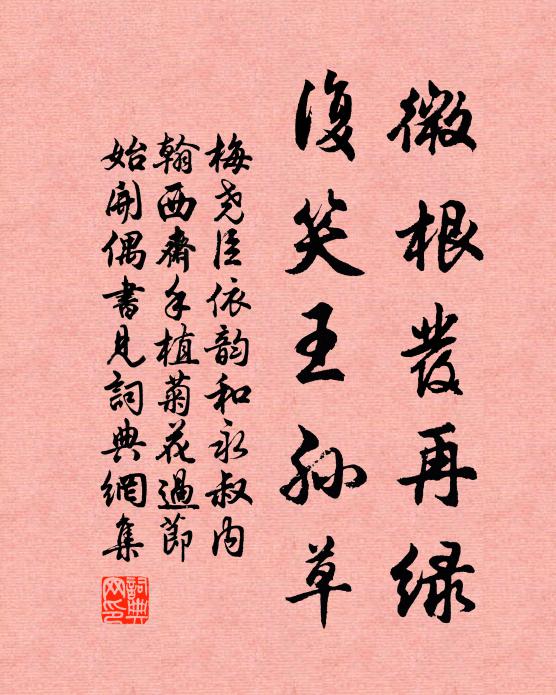 微根發再綠
復笑王孫草
梅堯臣依韵和永叔内
翰西齋手植菊花過節
始開偶書見詞典網集
詞典網印